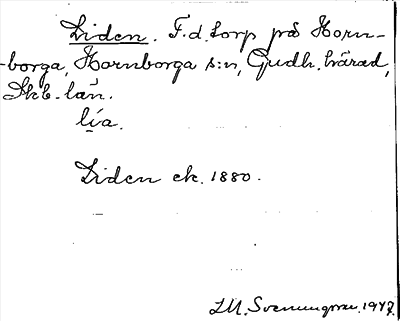 Liden. F.d. torp på Horn-
-borga, Hornborga s:n, Gudh. härad,
Skb. län.
lía.
Liden ek. 1880.
I.M. Svenungsson. 1947.